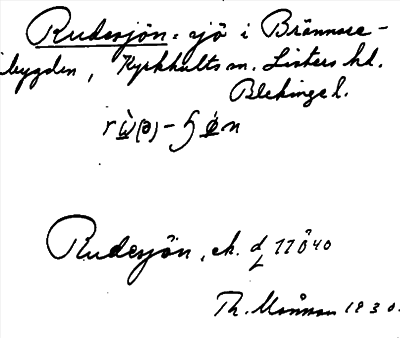 Rudesjön: sjö i Brännare-
bygden, Kyrkhults sn. Listers hd.
Blekinge l.
Rudesjön, ek.
Th. Månsson 1930.